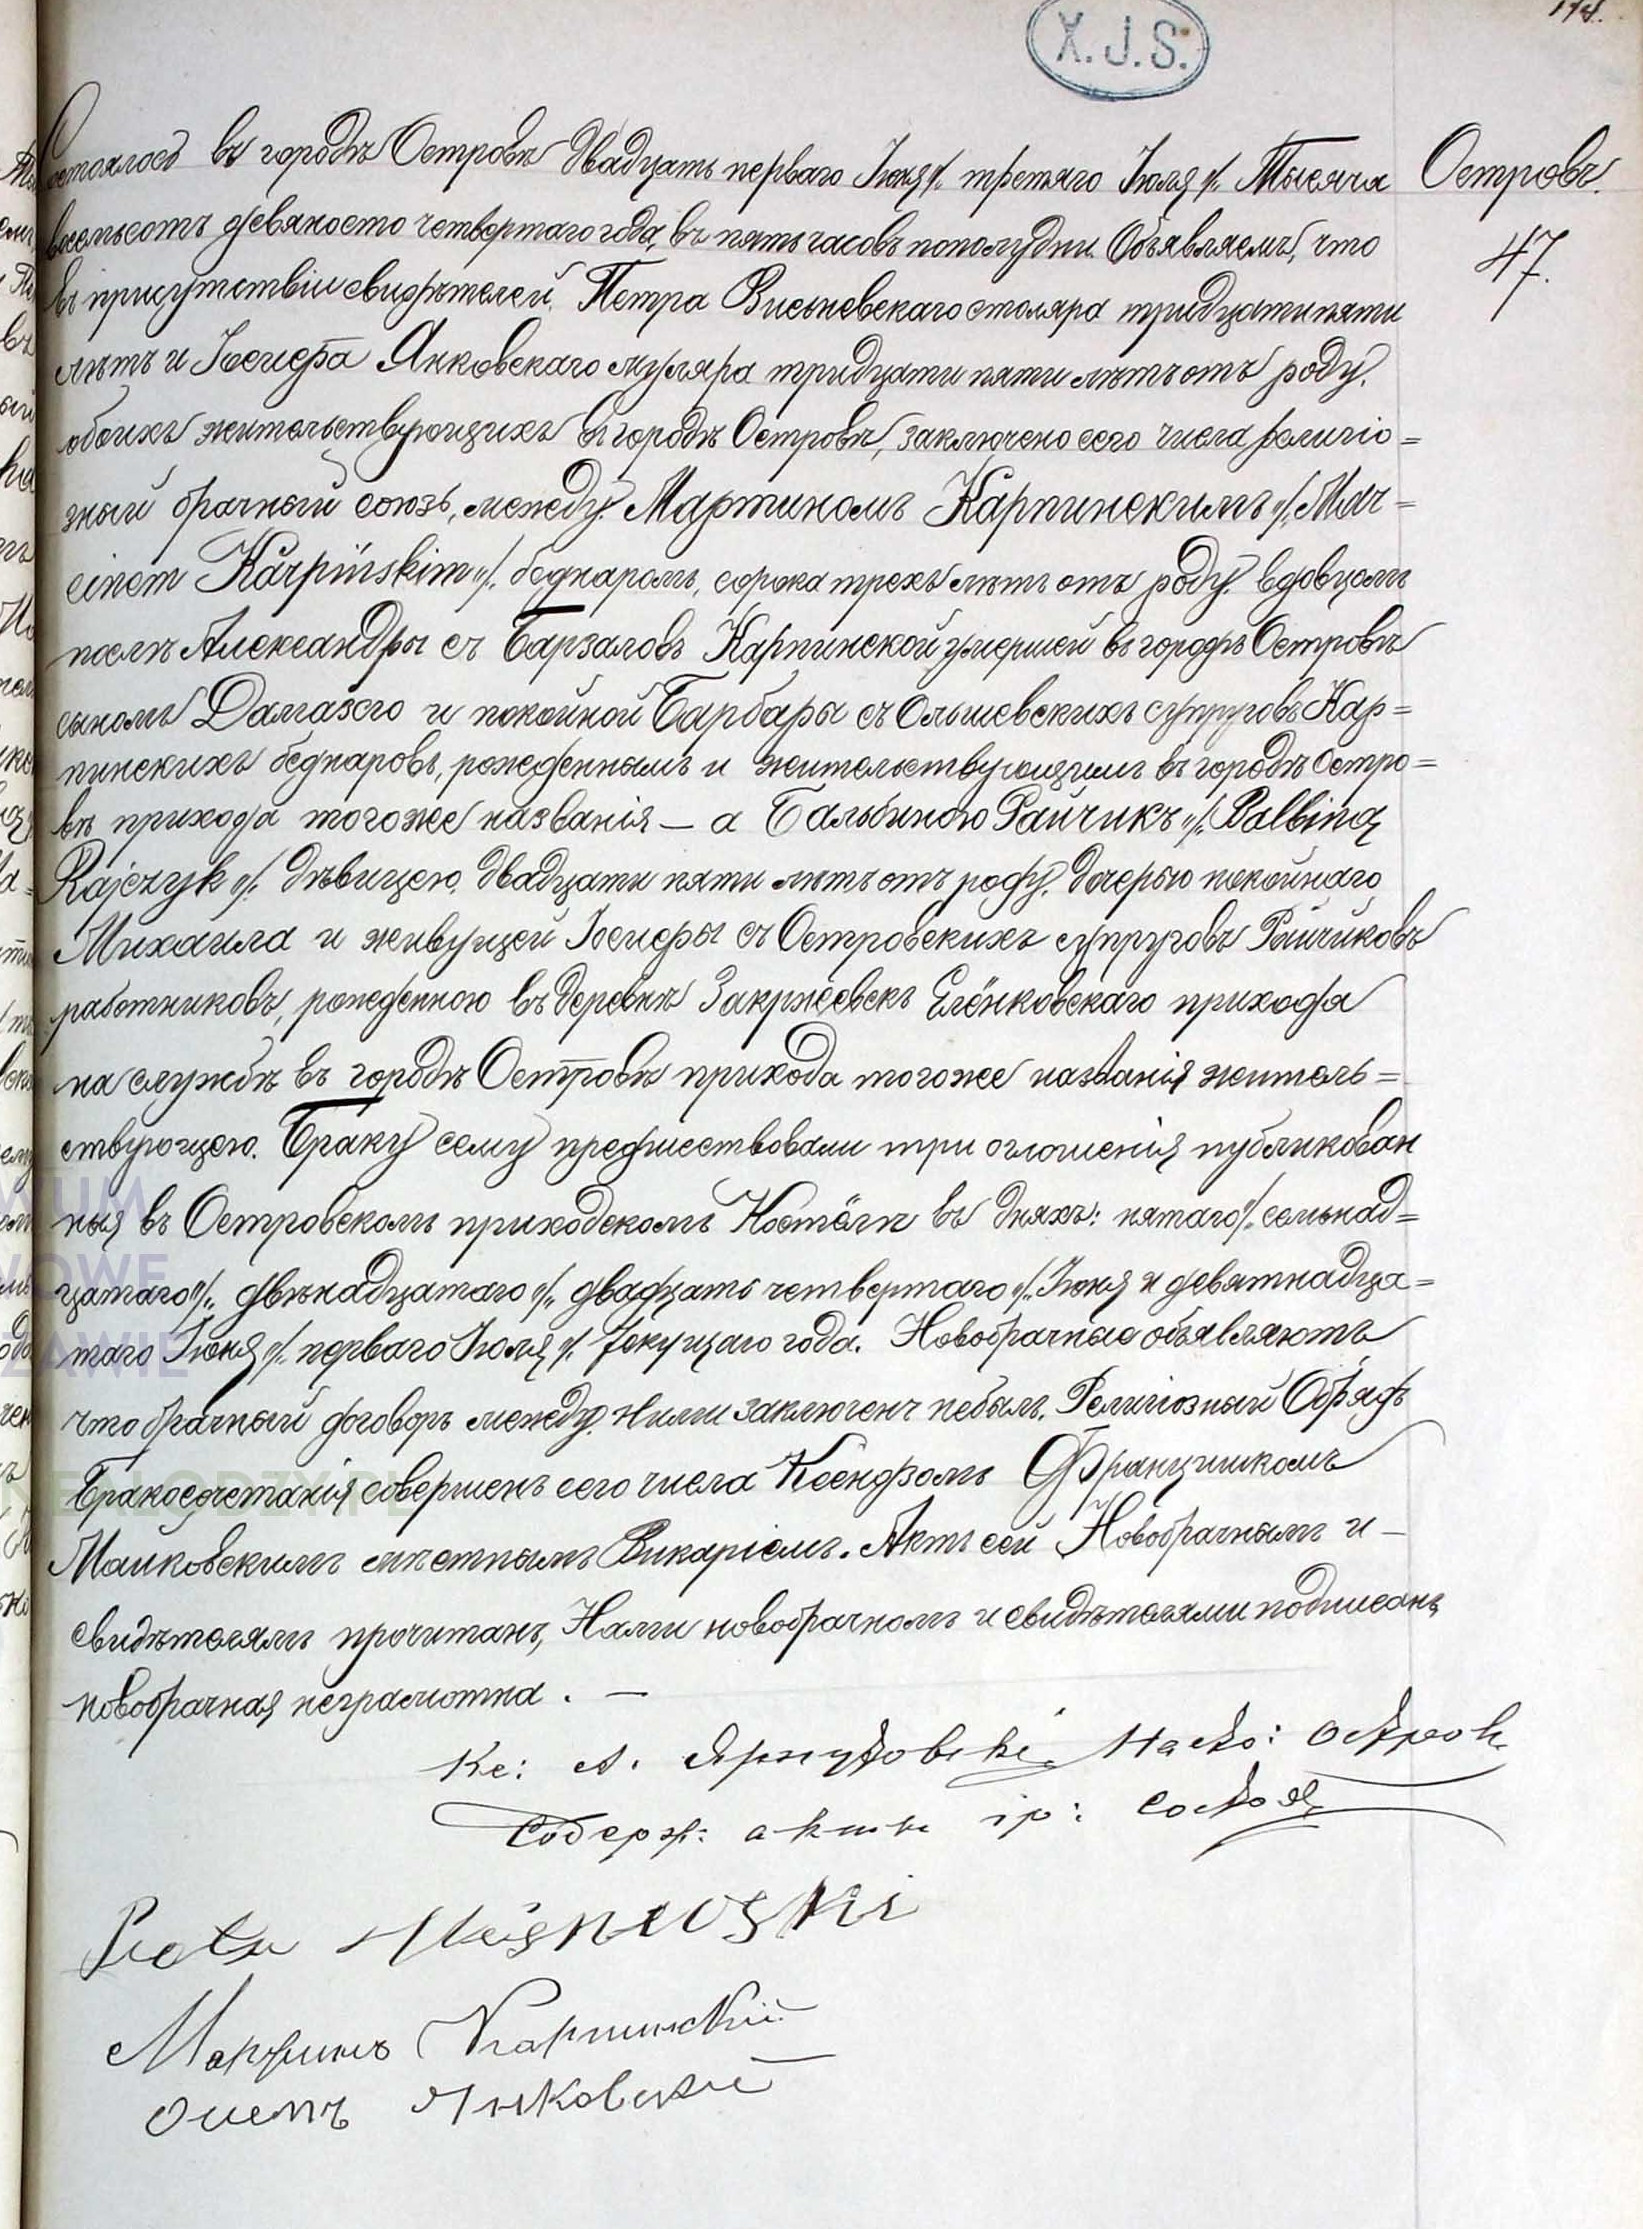 174.
X.J.S.
Островъ.
47.
Состоялось въ городѣ Островѣ двадцать перваго Іюня /. третяго Іюля /. Тысяча
восемьсотъ девяносто четвертаго года, въ пять часовъ пополудни. Объявляемъ, что
въ присутствіи свидѣтелей, Петра Висьневскаго столяра тридцати пяти
лѣтъ и Іосифа Янковскаго муляра тридцати пяти лѣтъ отъ роду,
обоихъ жительствующихъ въ городѣ Островѣ, заключено сего числа религіо=
зный брачный союзъ, между Мартиномъ Карпинскимъ /. Mar=
cinem Karpińskim /. беднаромъ, сорока трехъ лѣтъ отъ роду, вдовцомъ
послѣ Александры съ Барзаловъ Карпинской умершей въ городѣ Островѣ
сыномъ Дамазего и покойной Барбары съ Ольшевскихъ супруговъ Кар=
пинскихъ беднаровъ, рожденнымъ и жительствующимъ въ городѣ Остро=
вѣ прихода тогоже названія — а Бальбиною Райчикъ /. Balbiną
Rajczyk /. дѣвицею, двадцати пяти лѣтъ отъ роду, дочерью покойнаго
Михаила и живущей Іосифы съ Островскихъ супруговъ Райчиковъ
работниковъ, рожденною въ деревнѣ Закржевекъ Елёнковскаго прихода
на службѣ въ городѣ Островѣ прихода тогоже названія житель=
ствующею. Браку сему предшествовали три оглошенія публикован
ныя въ Островскомъ приходскомъ Костёлѣ въ дняхъ: пятаго /. семьнад=
цатаго /., двѣнадцатаго /., двадцать четвертаго /. Іюня и девятнадца=
таго Іюня /. перваго Іюля /. текущаго года. Новобрачные объявляютъ
что брачный договоръ между ними заключенъ небылъ. Религіозный Обрядъ
Бракосочетанія совершенъ сего числа Ксендзомъ Францишкомъ
Маиковскимъ мѣстнымъ Викаріемъ. Актъ сей Новобрачнымъ и —
свидѣтелямъ прочитанъ, Нами новобрачномъ и свидѣтелями подписанъ,
новобрачная неграмотна. —
Кс: А. Наст: Остров.
Содерж: акты гр: Состоя
Piotr
Мартинъ Карпинскій
Осипъ Янковскій